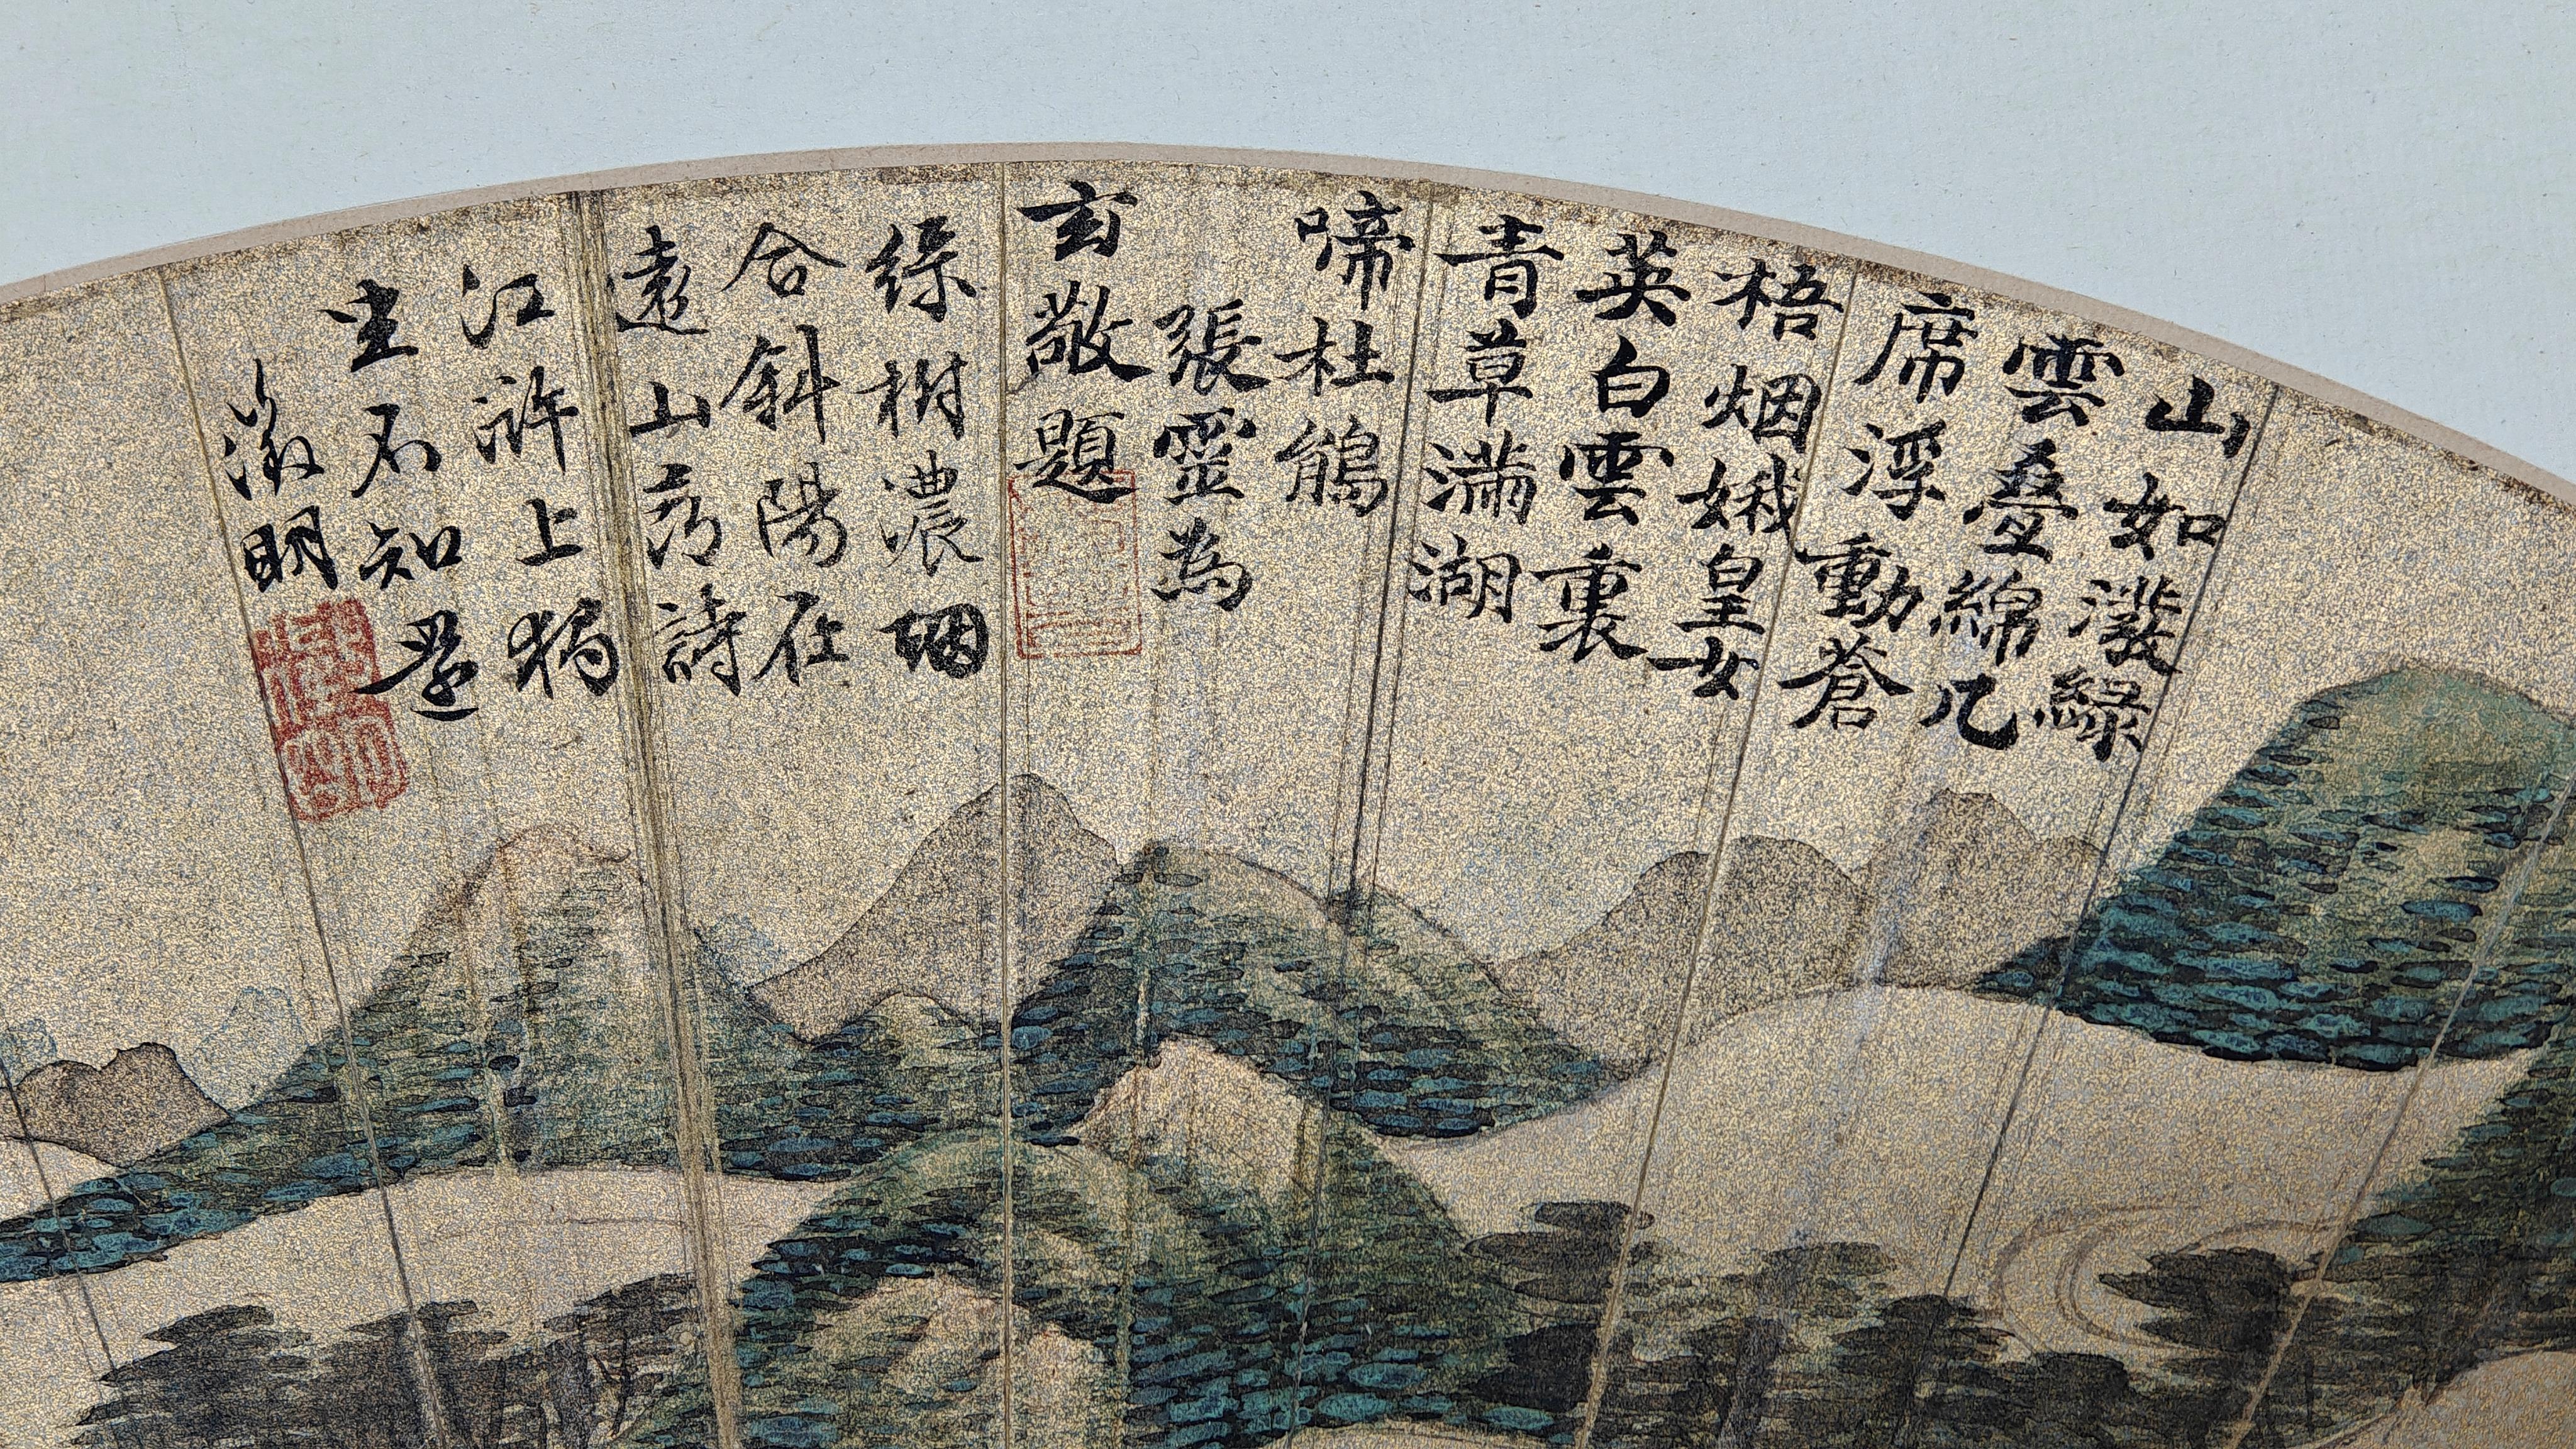 山如潑綠
雲疊綿几
席浮動蒼
梧烟娥皇女
英白雲裏
青草滿湖
啼杜鵑
張靈為
玄敬題
綠樹濃烟
合斜陽在
遠山為詩
江滸上獨
坐不知還
徵明